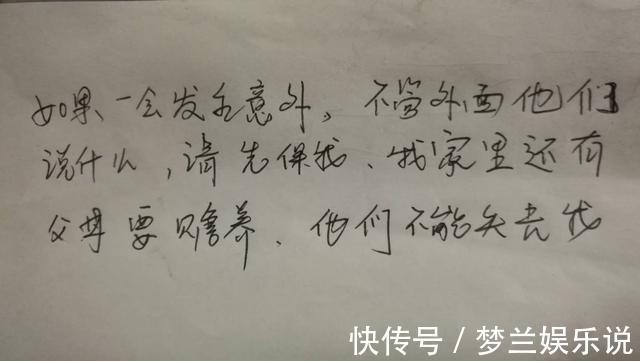 如果一会发生意外，不管外面他们
说什么，请先保我、我家里还有
父母要赡养、他们不能失去我
快传号／梦兰娱乐说